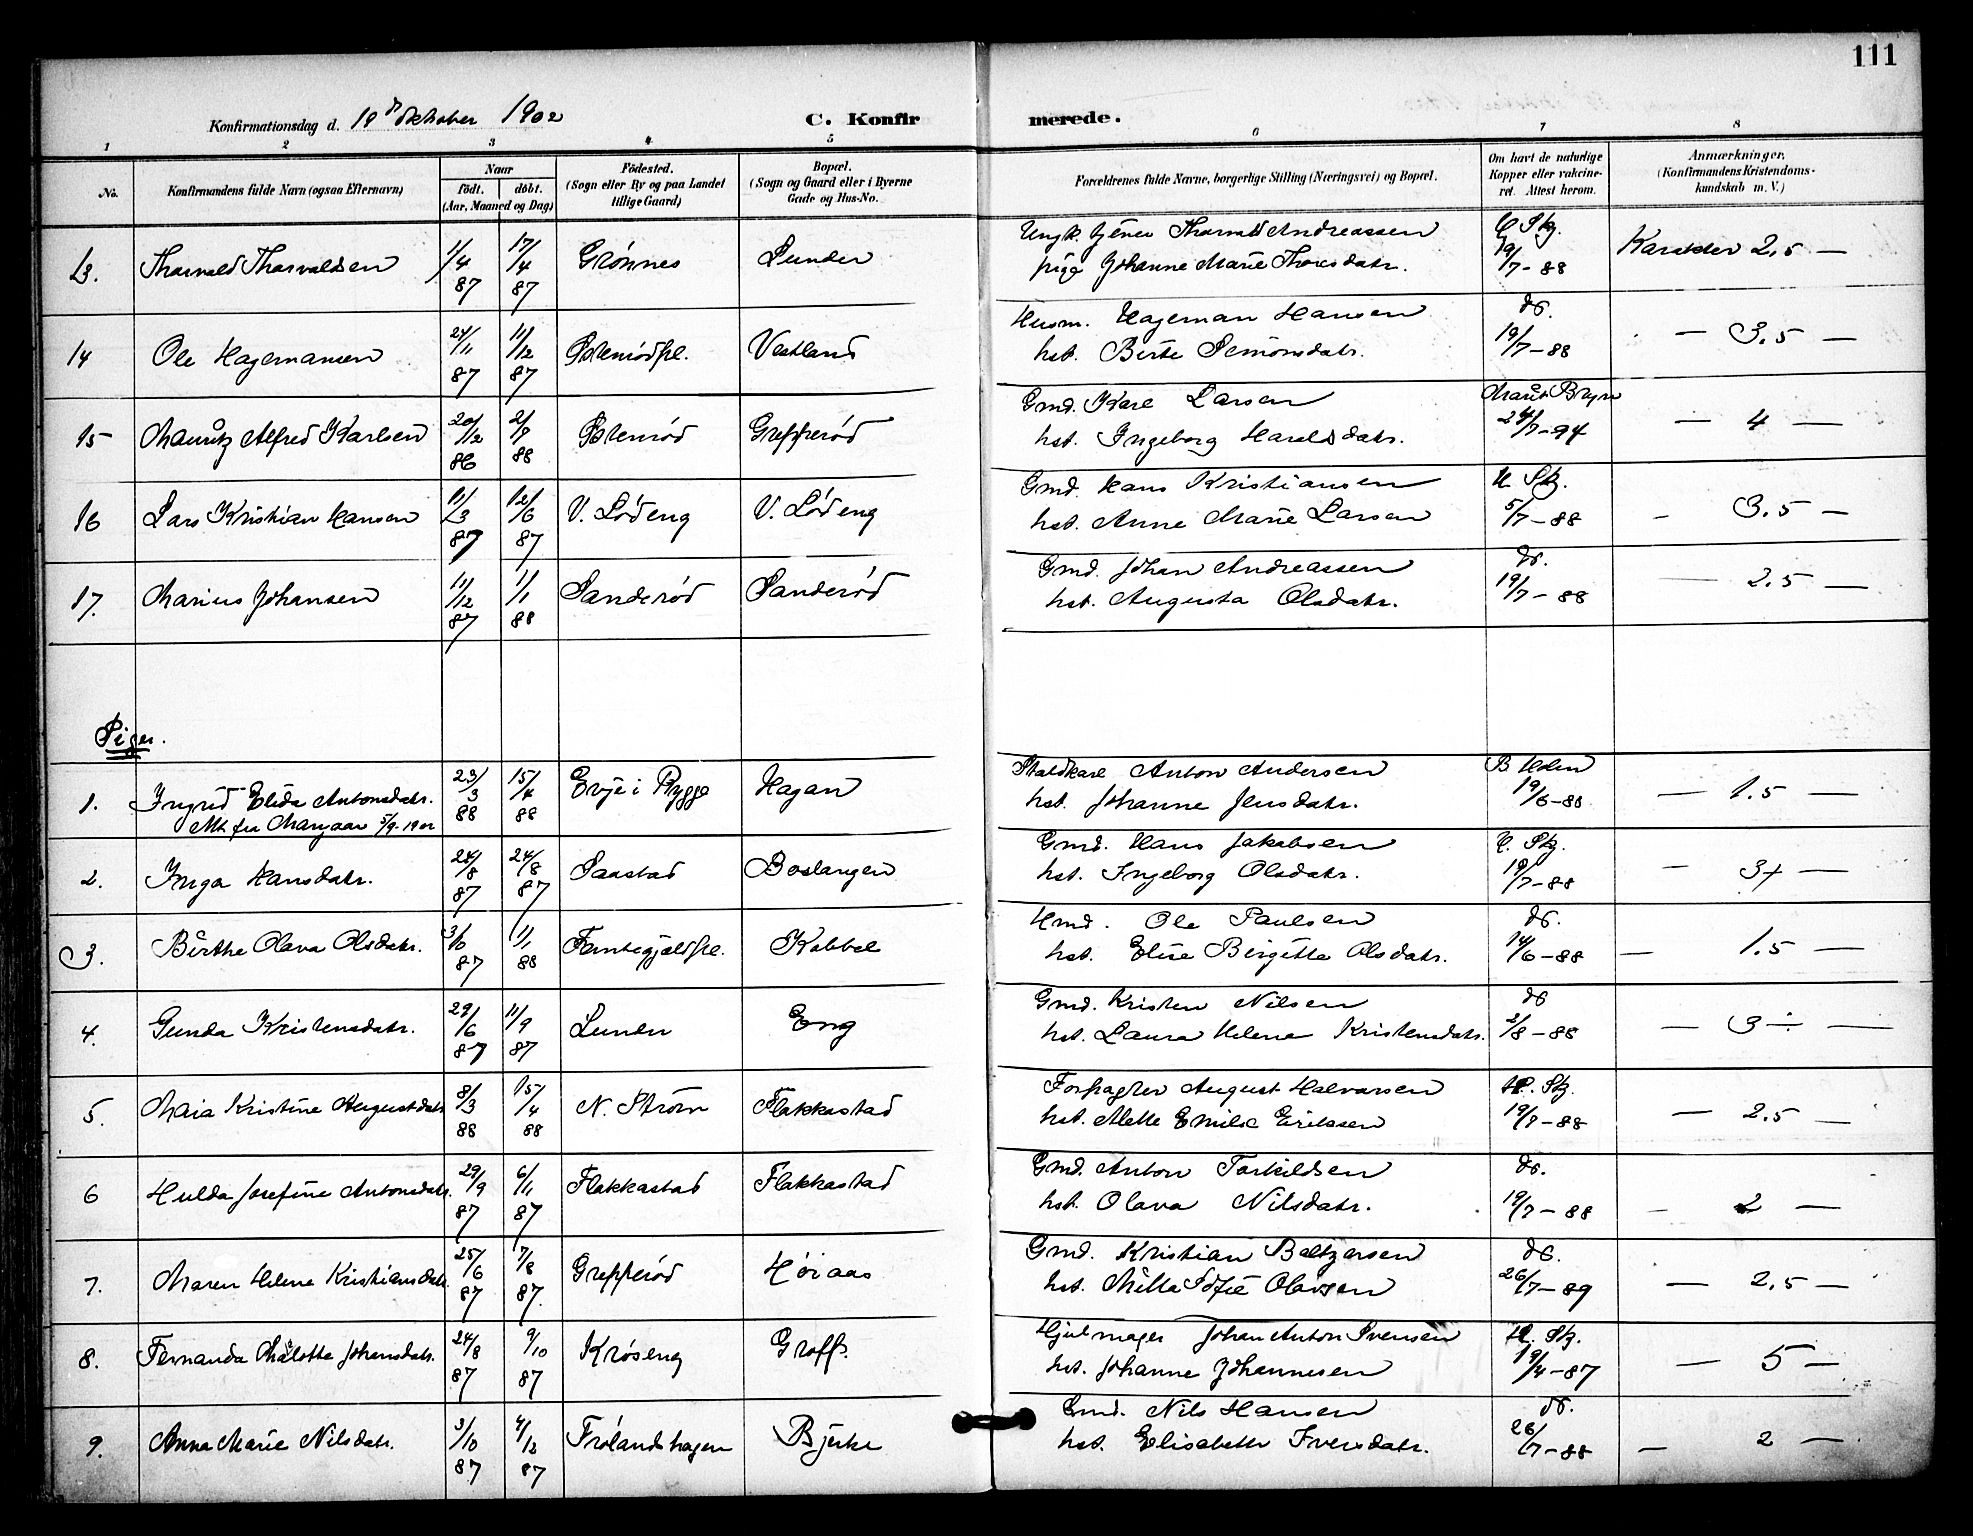 111
Konfirmationsdag d. 19de Oktober 1902 C. Konfirmerede.
1 2 3 4 5 6 7 8
No. Konfirmandens fulde Navn (ogsaa Efternavn) Naar født. døbt. (Aar, Maaned og Dag) Fødested. (Sogn eller By og paa Landet tillige Gaard) Bopæl. (Sogn og Gaard eller i Byerne Gade og Hus-No. Forældrenes fulde Navne, borgerlige Stilling (Næringsvei) og Bopæl. Om havt de naturlige Kopper eller vaccineret. Attest herom. Anmærkninger. (Konfirmandens Kristendomskundskab m. V.)
13. Thorvald Thorvaldsen 1/4 87 17/4 87 Grønnes Lunder Ungk. Thorvald Andreassen
pige Johanne Marie Thoresdatr. 19/7-88 Karakter 2,5 —
14 Ole Hagemansen 24/11 87 11/12 87 Østenrødpl. Vestland Husm. Hageman Hansen do.
hst. Berte Simonsdatr. 19/7-88 — 3.5 —
15 Mauritz Alfred Karlsen 20/12 86 2/9 88 Østenrød Grepperød Gmd. Karl Larsen
hst. Ingeborg Haraldsdatr. 24/7-94 — 4 —
16 Lars Kristian Hansen 11/3 87 12/6 87 V. Lødeng V. Lødeng Gmd. Hans Kristiansen
hst. Anne Marie Larsen 5/7-88 — 3.5 —
17. Marius Johansen 11/12 87 1/1 88 Sanderød Sanderød Gmd. Johan Andreassen do.
hst. Augusta Olsdatr. 19/7-88 — 2.5 —
Piger.
1. Ingrid Elida Antonsdatr. 23/3 88 15/4 88 Evje i Rygge Hagan Staldkarl Anton Andersen B Holm
5/9-1902 hst. Johanne Jensdatr. 19/6-88 — 1.5 —
2. Inga Hansdatr. 24/8 87 Saastad Boslangen Gmd. Hans Jakobsen
hst. Ingeborg Olsdatr. 19/7-88 — 3+ —
3. Birthe Olava Olsdatr. 3/10 87 1/1 88 Kabbel Hmd. Ole Paulsen do.
hst. Elise Birgitte Olsdatr. 14/6-88 — 1.5 —
4. Gunda Kristensdatr. 29/6 87 11/9 87 Lunder Eng Gmd. Kristen Nilsen do
hst. Laura Helene Kristensdatr. 2/8-88 — 3 ÷ —
5. Maia Kristine Augustdatr 8/3 88 15/4 88 N. Strøm Flakkastad Forpagter August Halvorsen
hst. Mette Emilie Eriksen 19/7-88 — 2.5 —
6 Hulda Josefine Antonsdatr. 29/9 87 6/11 87 Flakkastad Flakkastad Gmd. Anton Torkildsen do.
hst. Olava Nilsdatr. 19/7-88 — 2 —
7. Maren Helene Kristiansdatr 25/6 87 7/8 87. Grepperød Høiaas Gmd. Kristian Baltzersen do.
hst. Milla Sofie Olavsen 26/7-89 — 2,5 —
8. Fernanda Malotte Johansdatr. 24/8 87 9/10 87 Krøseng Groff. Hjulmager Johan Anton Svensen
hst. Johanne Johannesen 19/4-87 — 5 —
9. Anna Marie Nilsdatr. 3/10 87 4/12 87 Frølandshagen Bjerke Gmd. Nils Hansen do.
hst. Elisabeth Iversdatr. 26/7-88 — 2 —